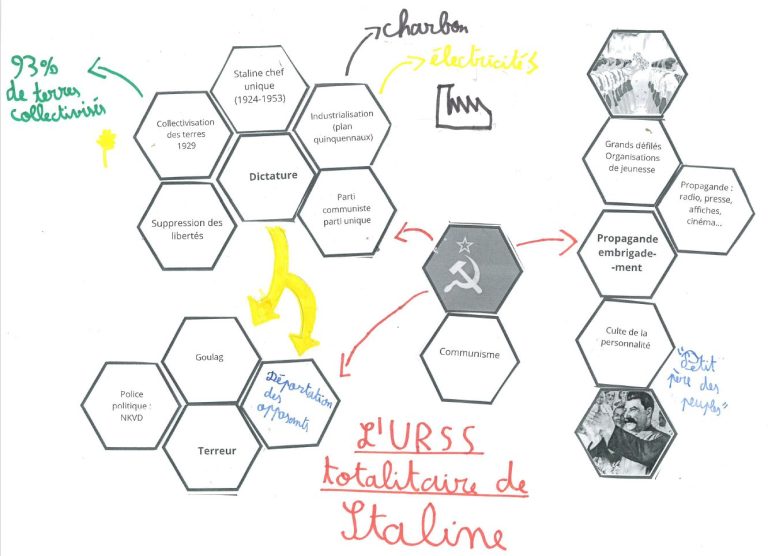 93%
de terres
collectivisés
charbon
électricités
Staline chef
unique
(1924-1953)
Collectivisation
des terres
1929
Industrialisation
(plan
quinquennaux)
Dictature
Suppression des
libertés
Parti
communiste
parti unique
Grands défilés
Organisations
de jeunesse
Propagande :
radio, presse,
affiches,
cinéma...
Propagande
embrigade-
-ment
Communisme
Culte de la
personnalité
"Petit
père des
peuples"
Goulag
Police
politique :
NKVD
Déportation
des
opposants
Terreur
L'URSS
totalitaire de
Staline